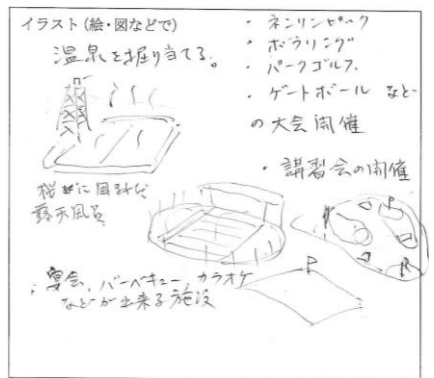 イラスト(絵・図などで)
温泉を掘り当てる。
・ネンリンピック
・ボウリング
・パークゴルフ
・ゲートボール など
の大会開催
・講習会の開催
桜に囲まれた
露天風呂
・宴会、バーベキュー、カラオケ
などが出来る施設